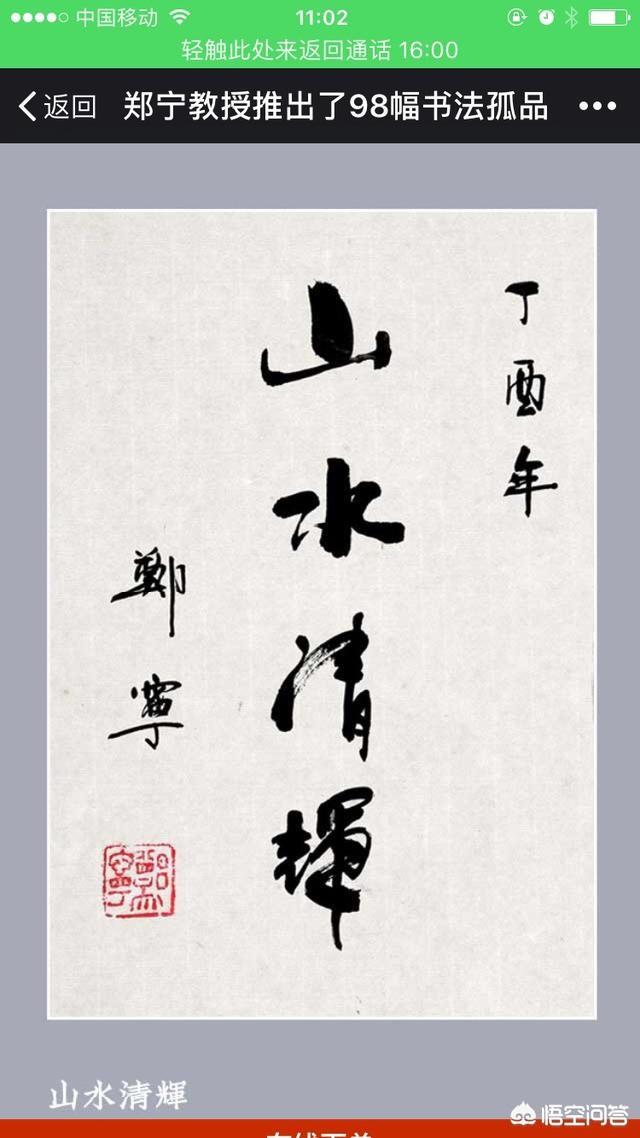 中国移动 11:02
轻触此处来返回通话 16:00
返回 郑宁教授推出了98幅书法孤品
丁酉年
山水清輝
鄭寧
鄭寧
山水清輝
悟空问答